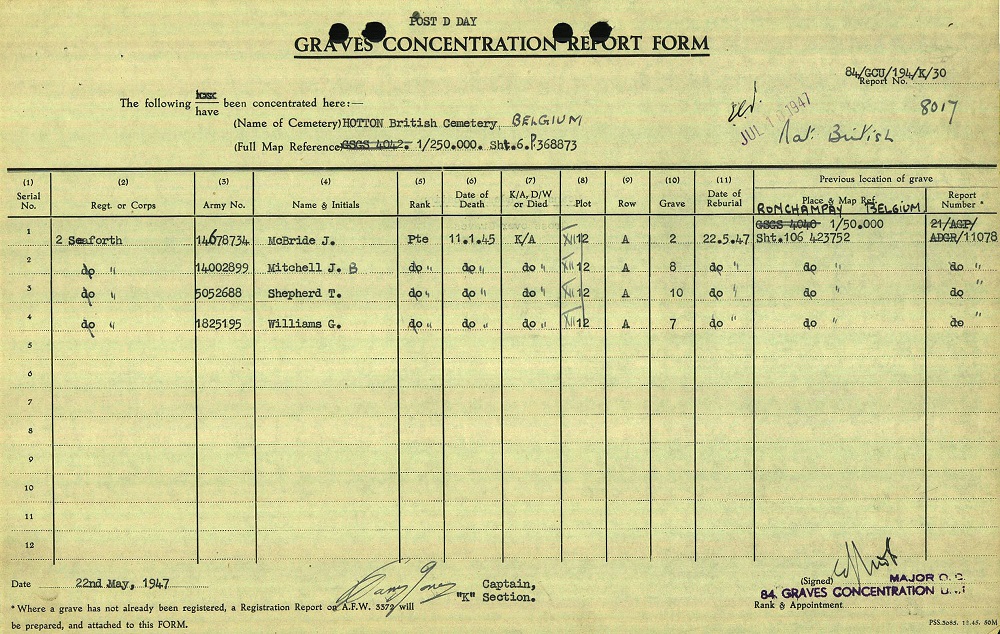 POST D DAY
GRAVES CONCENTRATION REPORT FORM
84/GCU/194/K/30
Report No.
8017
The following have been concentrated here:—
JUL 1947
Nat: British
(Name of Cemetery) HOTTON British Cemetery BELGIUM
(Full Map Reference) GSGS 4042. 1/250.000. Sht.6.P.368873
(1) (2) (3) (4) (5) (6) (7) (8) (9) (10) (11) Previous location of grave
Serial No. Regt. or Corps Army No. Name & Initials Rank Date of Death K/A, D/W or Died Plot Row Grave Date of Reburial Place & Map Ref. Report Number *
RONCHAMPAY BELGIUM
GSGS 4040 1/50.000 21/AGP/
1 2 Seaforth 14678734 McBride J. Pte 11.1.45 K/A XII 12 A 2 22.5.47 Sht.106 423752 ADGR/11078
2 do " 14002899 Mitchell J. B do " do " do " XII 12 A 8 do " do " do "
3 do " 5052688 Shepherd T. do " do " do " XII 12 A 10 do " do " do "
4 do " 1825195 Williams G. do " do " do " XII 12 A 7 do " do " do "
5
6
7
8
9
10
11
12
Date 22nd May, 1947
Captain,
"K" Section.
(Signed)
MAJOR O.C.
84 GRAVES CONCENTRATION
Rank & Appointment
* Where a grave has not already been registered, a Registration Report on A.F.W. 3372 will
be prepared, and attached to this FORM.
PSS.3085. 12.45. 50M